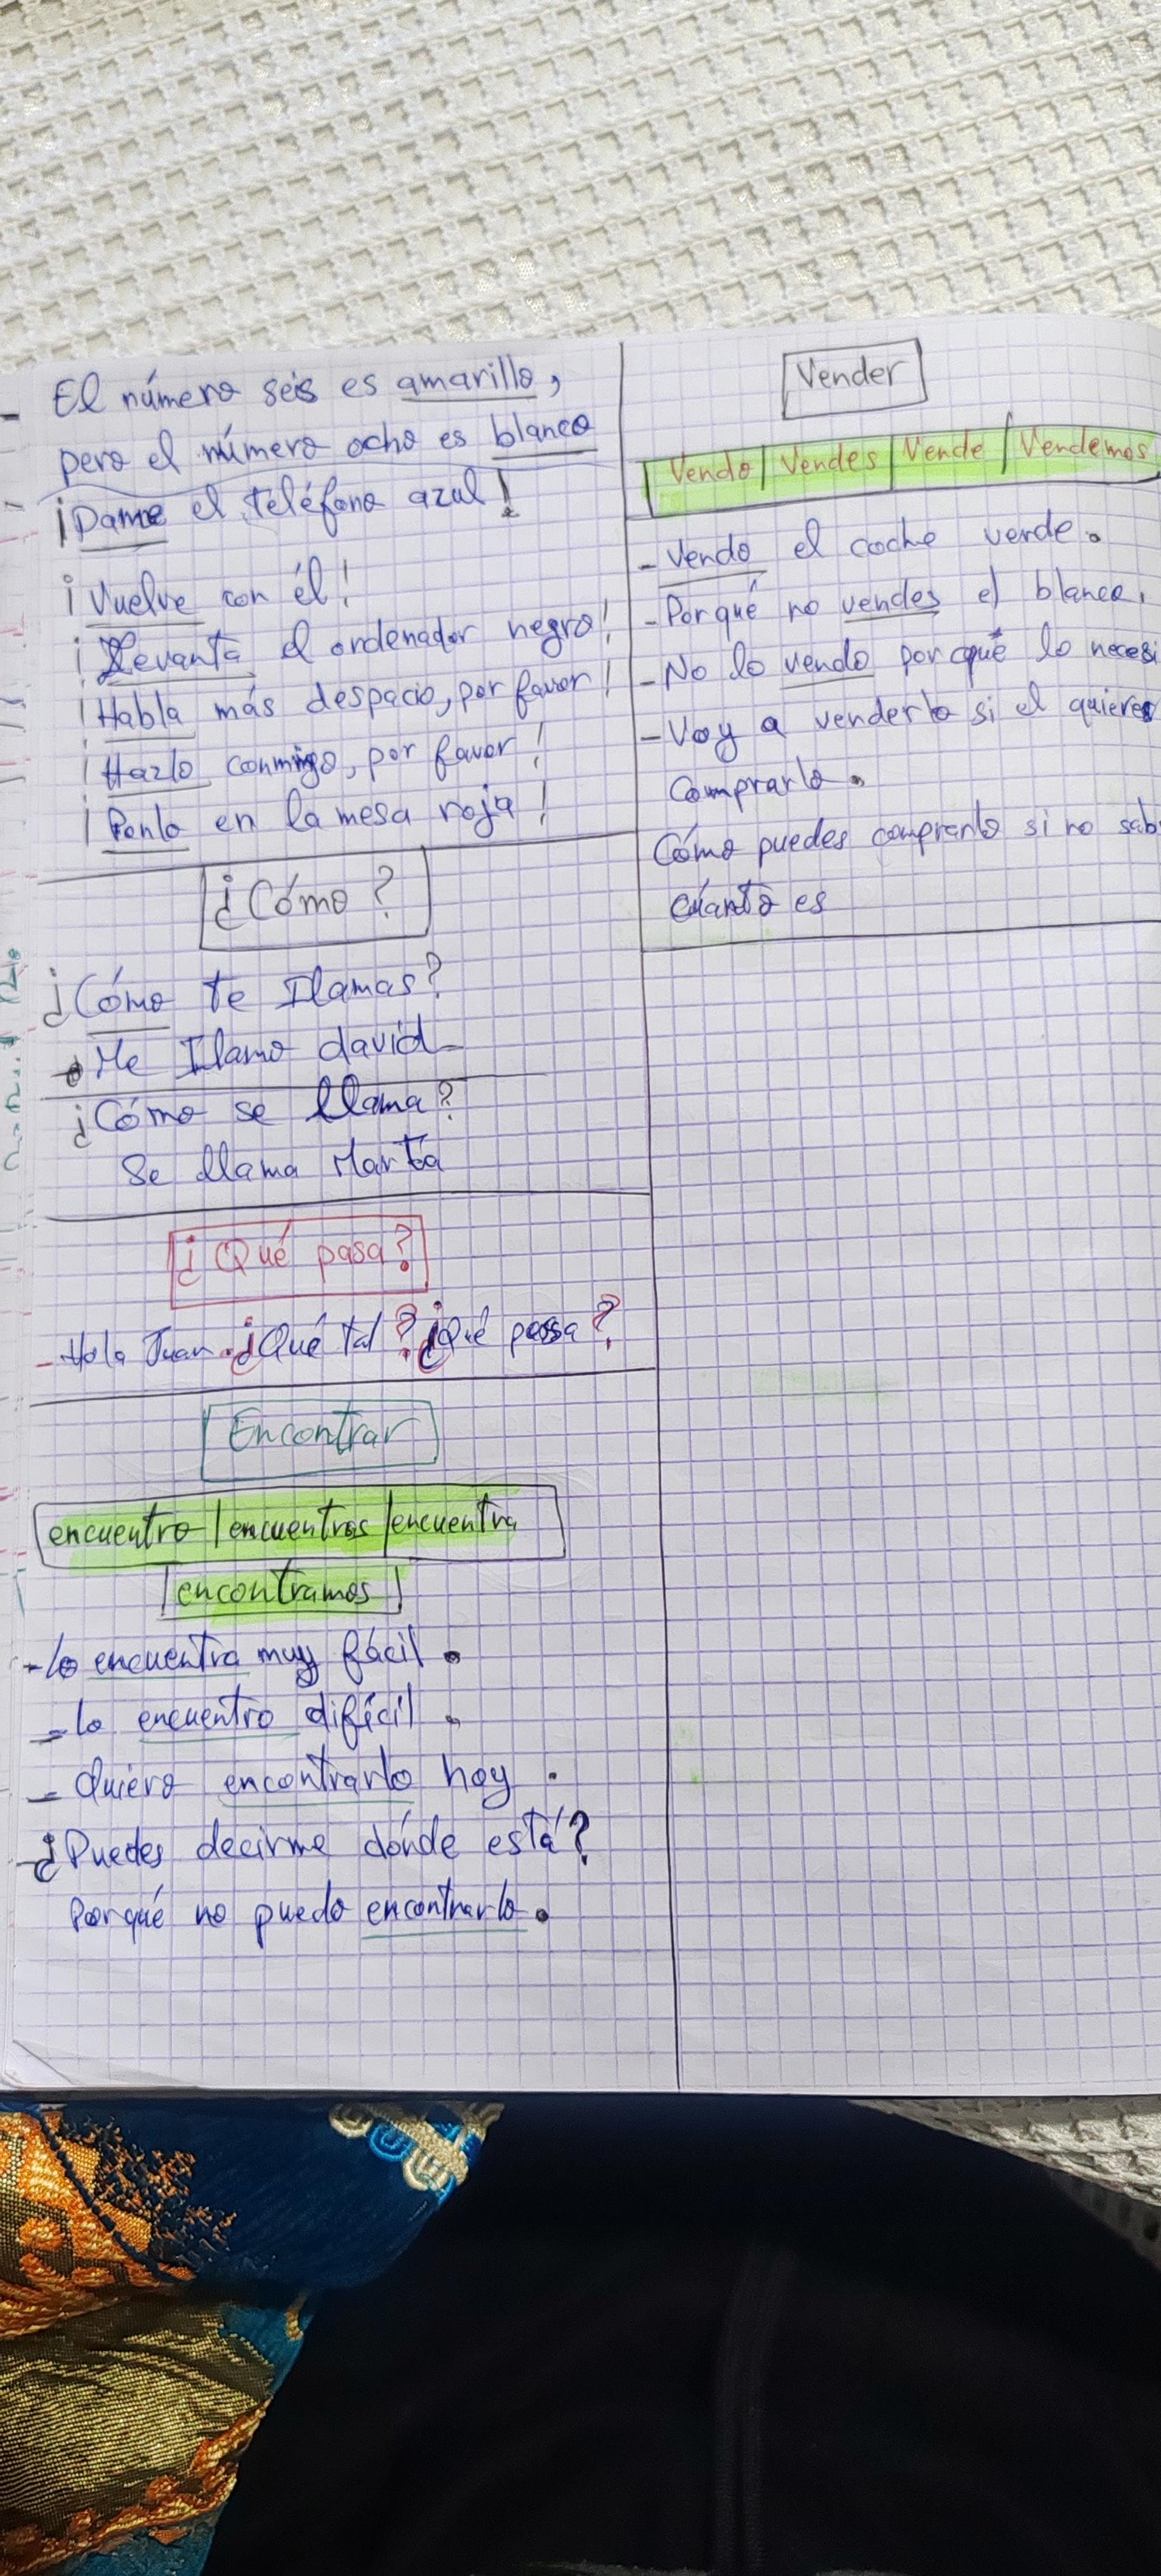 El número seis es amarillo,
pero el número ocho es blanco
¡Dame el teléfono azul!
¡Vuelve con él!
¡Levanta el ordenador negro!
¡Habla más despacio, por favor!
¡Hazlo conmigo, por favor!
¡Ponlo en la mesa roja!
¿Cómo?
¿Cómo te llamas?
Me llamo david
¿Cómo se llama?
Se llama Marta
¿Qué pasa?
- Hola Juan. ¿Qué tal? ¿Qué passa?
Encontrar
encuentro | encuentras | encuentra
encontramos
- lo encuentra muy fácil.
- lo encuentro difícil.
- Quiero encontrarlo hoy.
- ¿Puedes decirme dónde está?
Porqué no puedo encontrarlo.
Vender
Vendo | Vendes | Vende | Vendemos
- Vendo el coche verde.
- Porqué no vendes el blanco,
- No lo vendo porque lo necesi
- Voy a venderlo si el quieres
Comprarlo.
Cómo puedes comprarlo si no sab
cuánto es